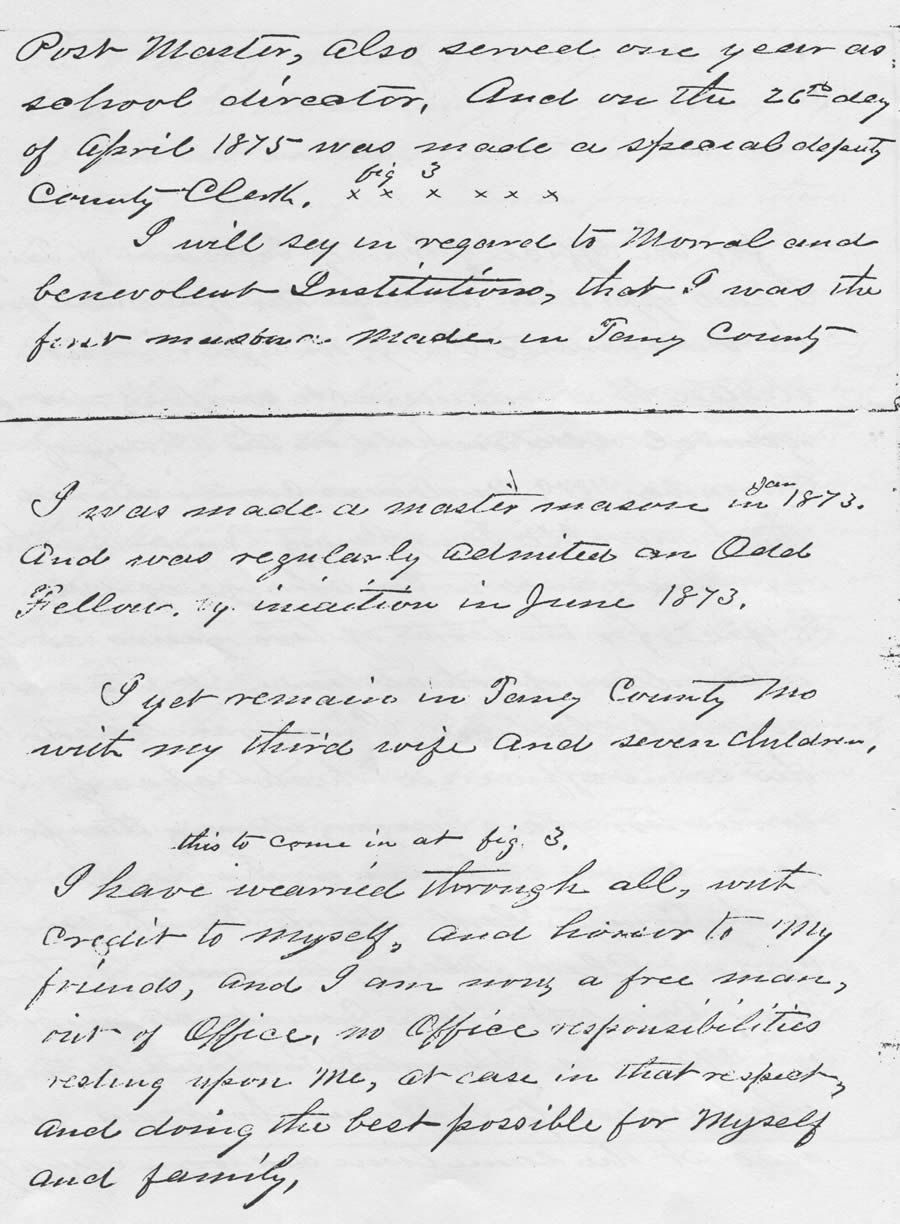 Post Master, Also served one year as
school director, And on the 26th day
of April 1875 was made a special deputy
fig 3
County Clerk. x x x x x x
I will sey in regard to Morral and
benevolent Institutions, that I was the
first mason made in Taney County
I was made a master mason in Jan 1873.
And was regularly admited an Odd
Fellow. by iniaition in June 1873.
I yet remain in Taney County Mo
with my third wife and seven children,
this to come in at fig. 3.
I have wearried through all, with
credit to myself, and honour to My
friends, and I am now a free man,
out of Office, no Office responsibilities
resting upon Me, at ease in that respect,
and doing the best possible for Myself
and family,